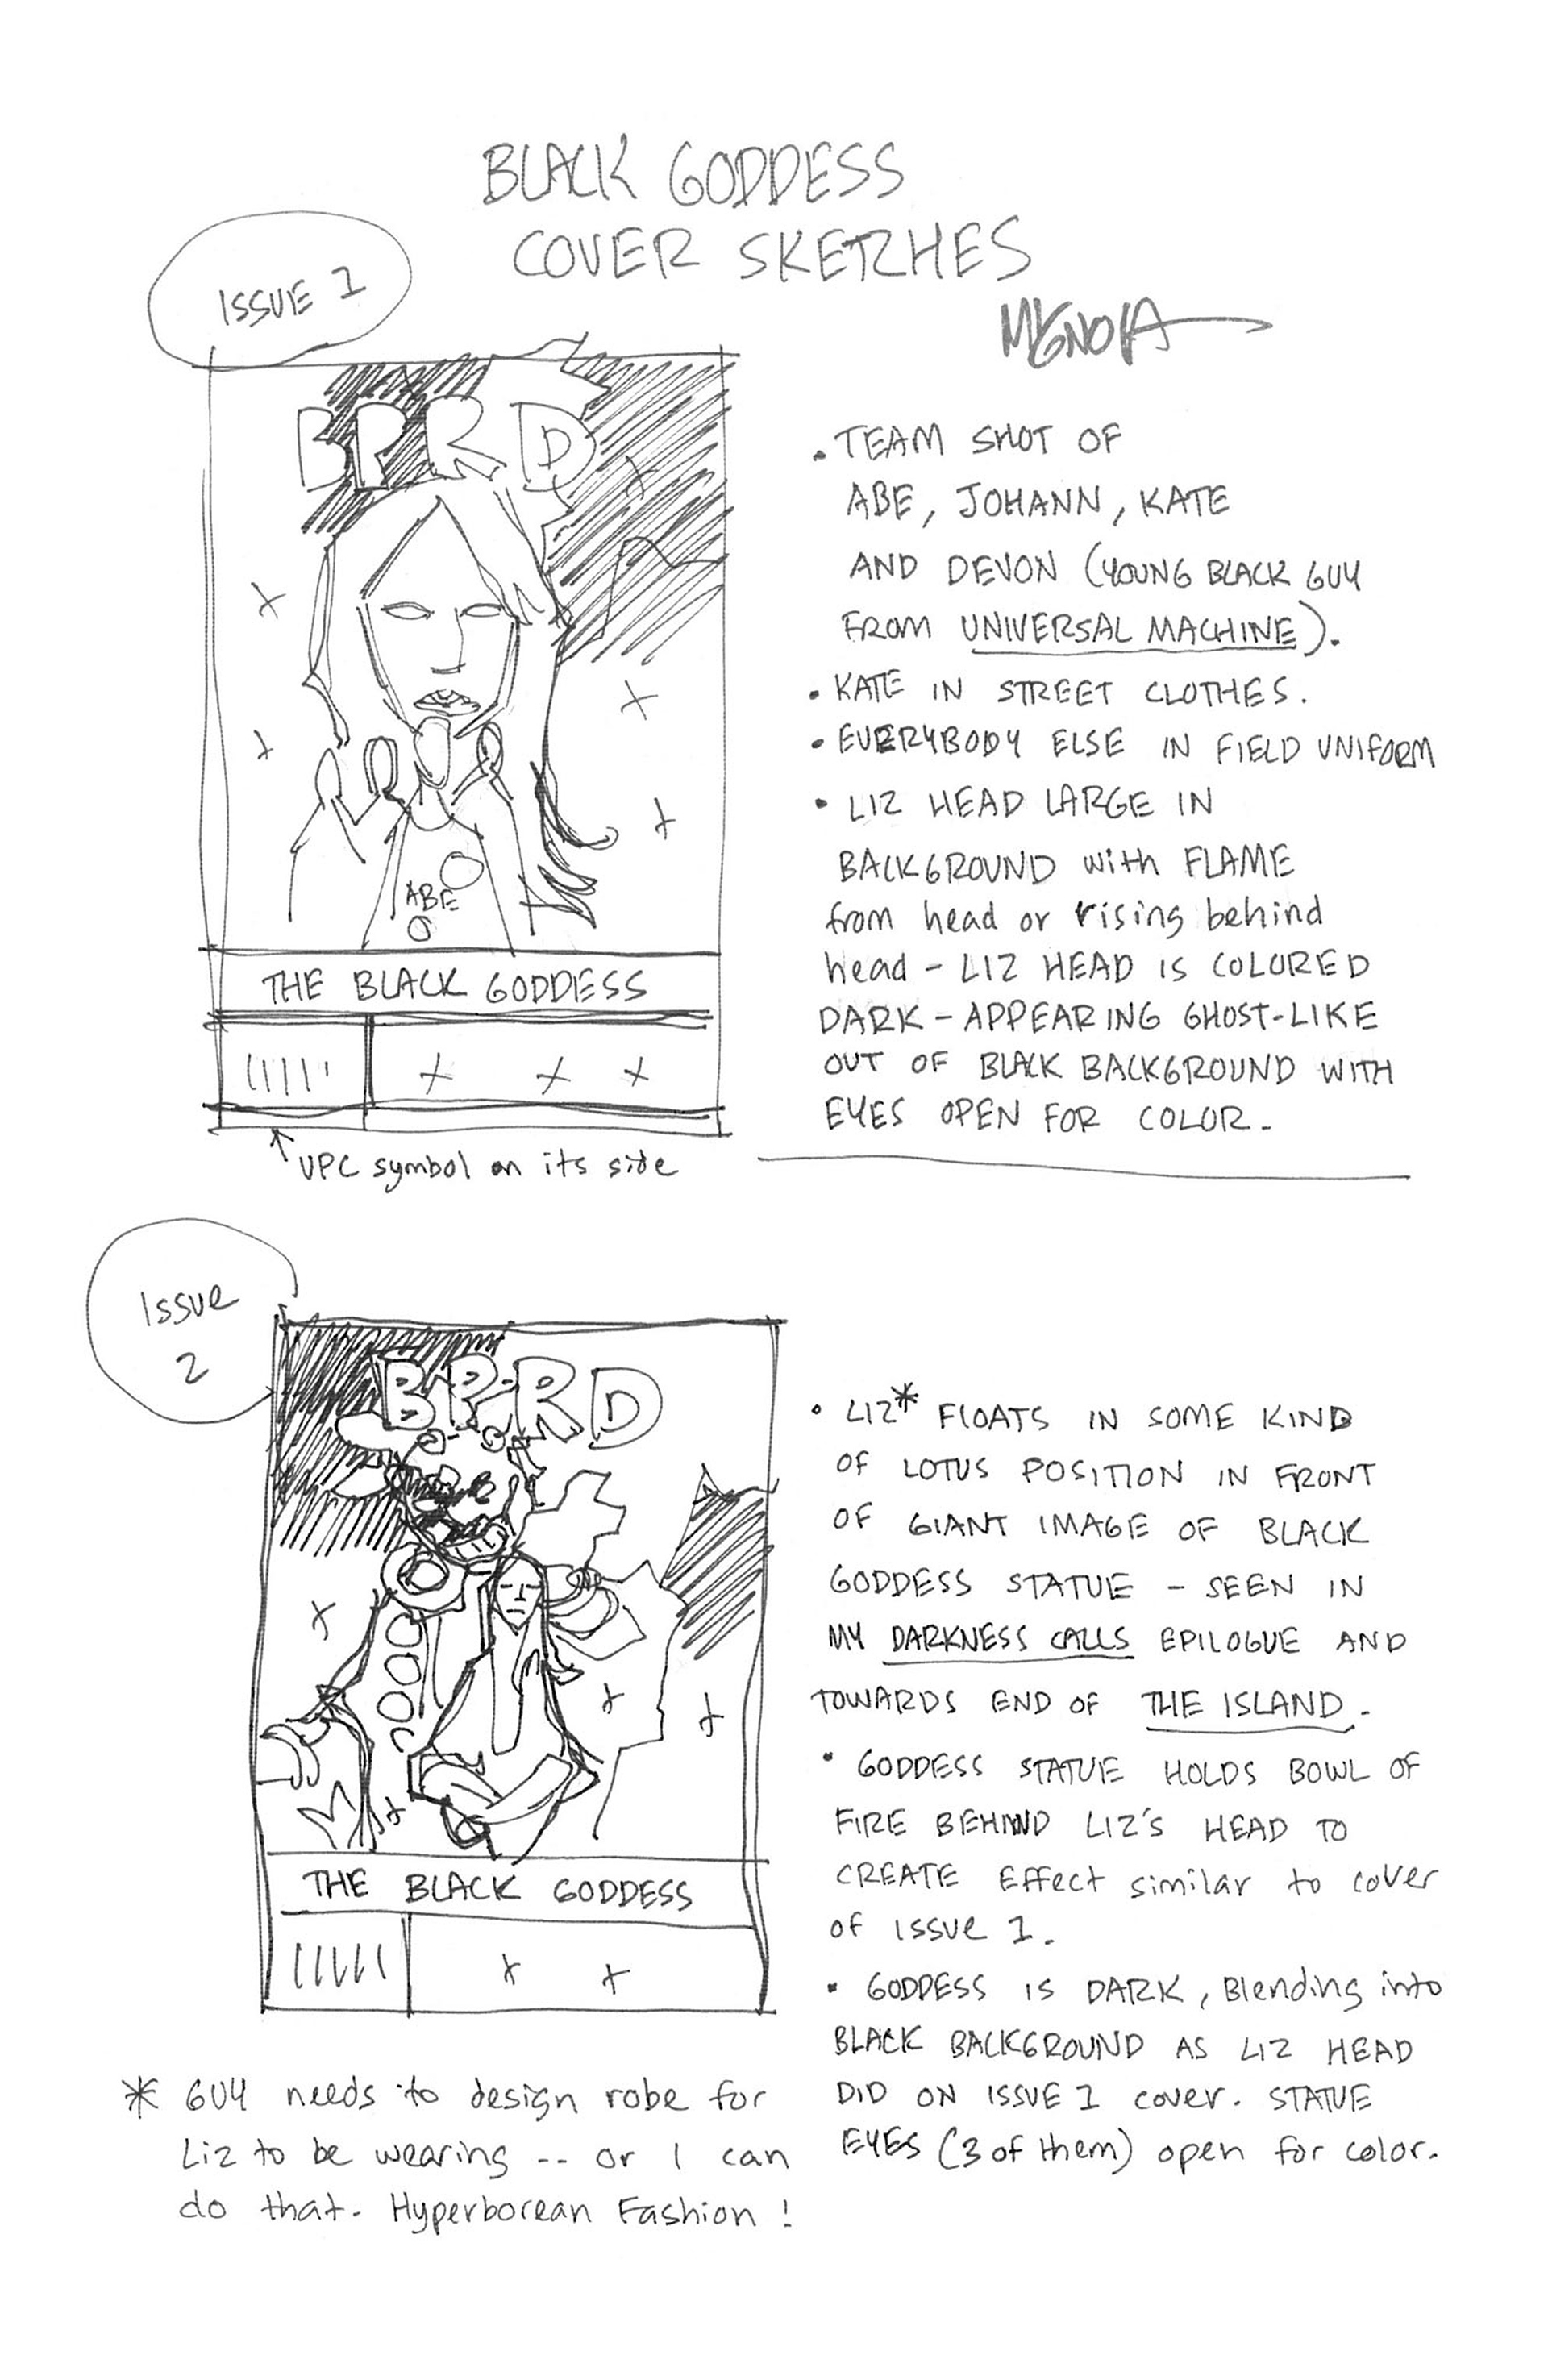 BLACK GODDESS
COVER SKETCHES
MIGNOLA
ISSUE 1
BPRD
ABE
THE BLACK GODDESS
UPC symbol on its side
• TEAM SHOT OF
ABE, JOHANN, KATE
AND DEVON (YOUNG BLACK GUY
FROM UNIVERSAL MACHINE).
• KATE IN STREET CLOTHES.
• EVERYBODY ELSE IN FIELD UNIFORM
• LIZ HEAD LARGE IN
BACKGROUND with FLAME
from head or rising behind
head - LIZ HEAD IS COLORED
DARK - APPEARING GHOST-LIKE
OUT OF BLACK BACKGROUND WITH
EYES OPEN FOR COLOR.
Issue
2
B·P·R·D
THE BLACK GODDESS
• LIZ* FLOATS IN SOME KIND
OF LOTUS POSITION IN FRONT
OF GIANT IMAGE OF BLACK
GODDESS STATUE - SEEN IN
MY DARKNESS CALLS EPILOGUE AND
TOWARDS END OF THE ISLAND.
• GODDESS STATUE HOLDS BOWL OF
FIRE BEHIND LIZ'S HEAD TO
CREATE Effect similar to cover
of issue 1.
• GODDESS IS DARK, Blending into
BLACK BACKGROUND AS LIZ HEAD
DID ON ISSUE 1 cover. STATUE
EYES (3 of them) open for color.
* GUY needs to design robe for
Liz to be wearing -- or I can
do that. Hyperborean Fashion!